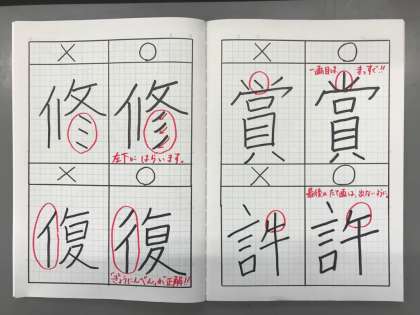 × ○
修 修
左下にはらいます。
× ○
復 復
「ぎょうにんべん」が正解!!
× ○
一画目は まっすぐ!!
賞 賞
× ○
最後のたて画は、出ないように。
許 許